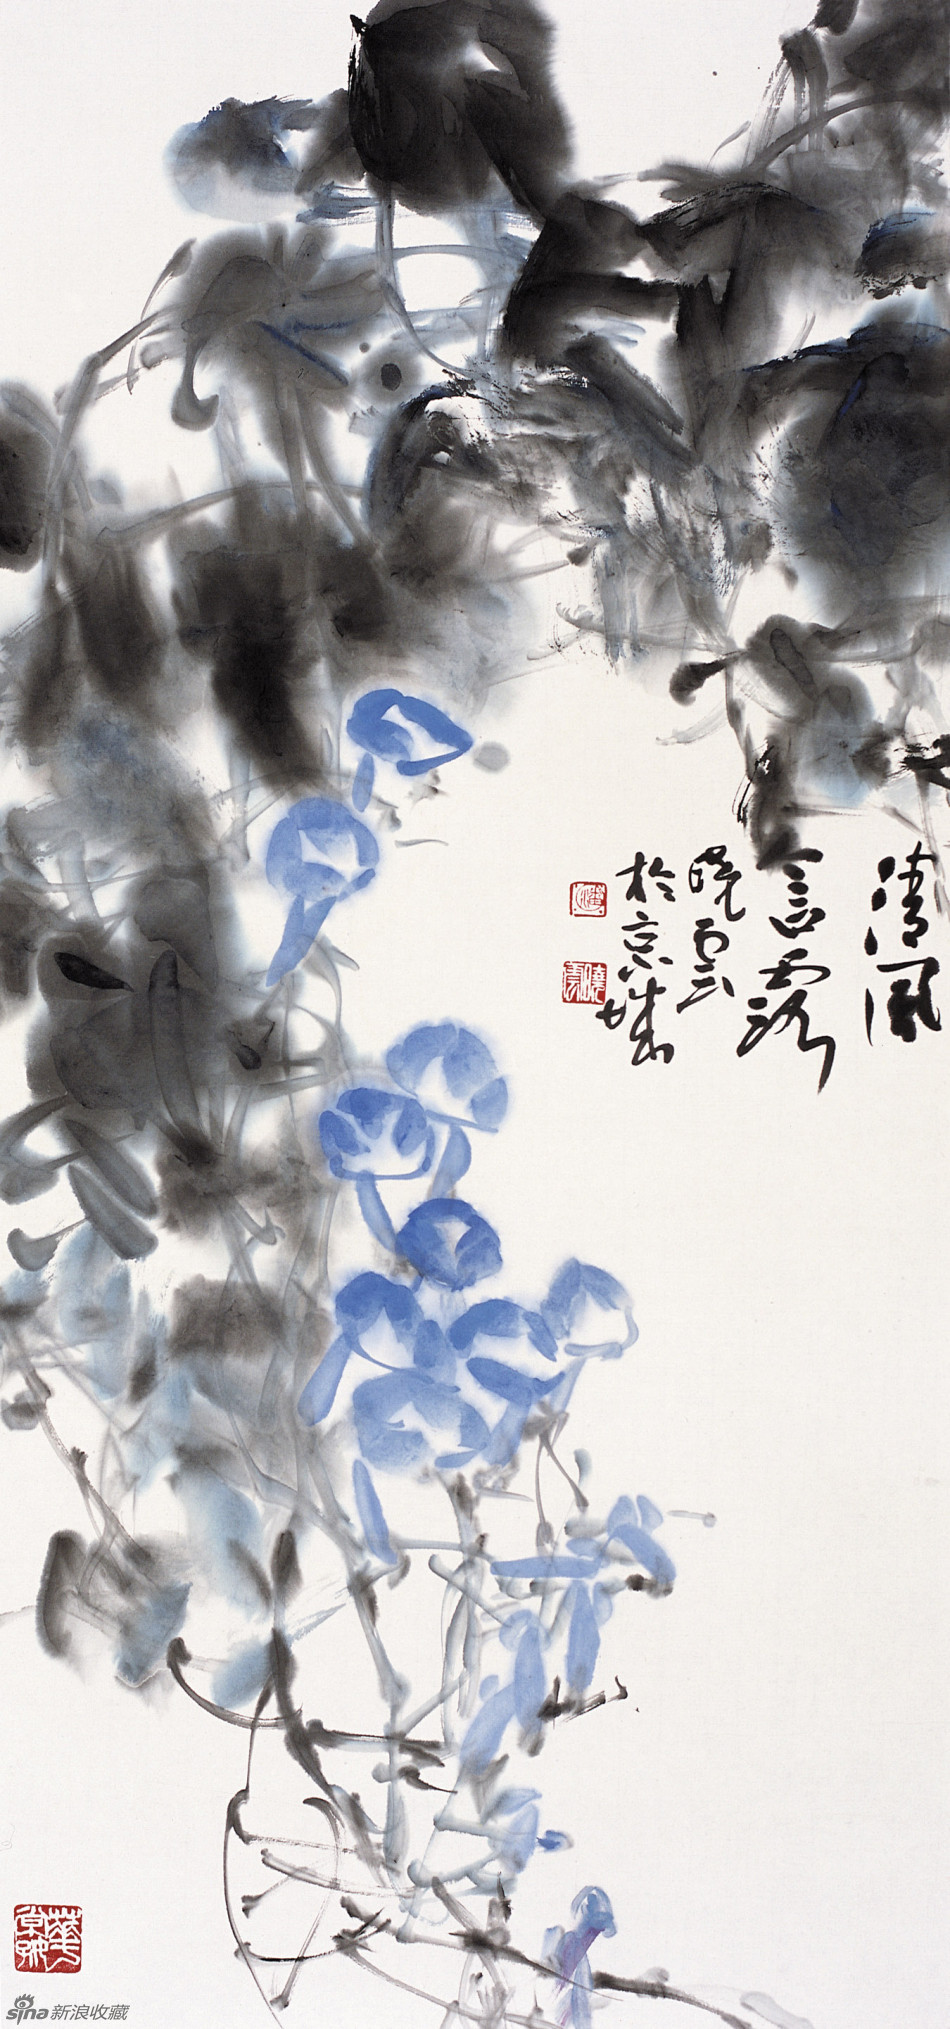 清風
含露
晓雲
於京城
sina新浪收藏